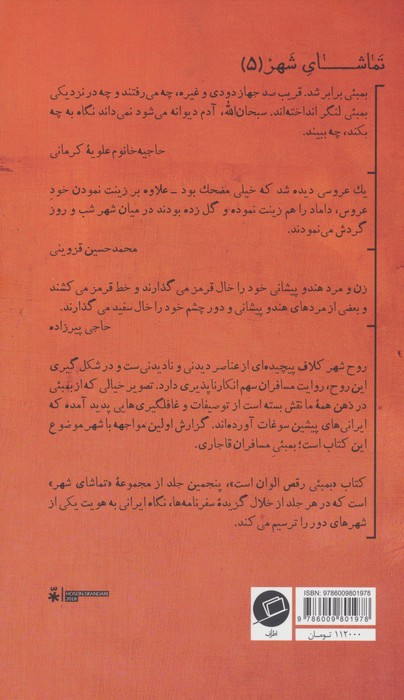 تماشای شهر (۵)
بمبئی برابر شد. قریب سد جهاز دودی و غیره، چه می‌رفتند و چه در نزدیکی
بمبئی لنگر انداخته‌اند. سبحان‌الله، آدم دیوانه می‌شود نمی‌داند نگاه به چه
بکند، چه ببیند.
حاجیه‌خانوم علویهٔ کرمانی
یك عروسی دیده شد که خیلی مضحك بود ـ علاوه بر زینت نمودن خودِ
عروس، داماد را هم زینت نموده و گل زده بودند در میان شهر شب و روز
گردش می‌نمودند.
محمدحسین قزوینی
زن و مرد هندو پیشانی خود را خال قرمز می گذارند و خط قرمز می کشند
و بعضی از مردهای هندو پیشانی و دور چشم خود را خال سفید می گذارند.
حاجی پیرزاده
روح شهر کلاف پیچیده‌ای از عناصر دیدنی و نادیدنی‌ست و در شکل گیری
این روح، روایت مسافران سهم انکارناپذیری دارد. تصویر خیالی که از بمبئی
در ذهن همهٔ ما نقش بسته است از توصیفات و غافلگیری‌هایی پدید آمده که
ایرانی‌های پیشین سوغات آورده‌اند. گزارش اولین مواجهه با شهر موضوع
این کتاب است؛ بمبئیِ مسافران قاجاری.
کتاب «بمبئی رقص الوان است»، پنجمین جلد از مجموعهٔ «تماشای شهر»
است که در هر جلد از خلال گزیدهٔ سفرنامه‌ها، نگاه ایرانی به هویت یکی از
شهرهای دور را ترسیم می کند.
HOSEIN ISKANDARI
اطراف
ISBN: 9786009801978
9 786009 801978
۱۱۲۰۰۰ تومـان